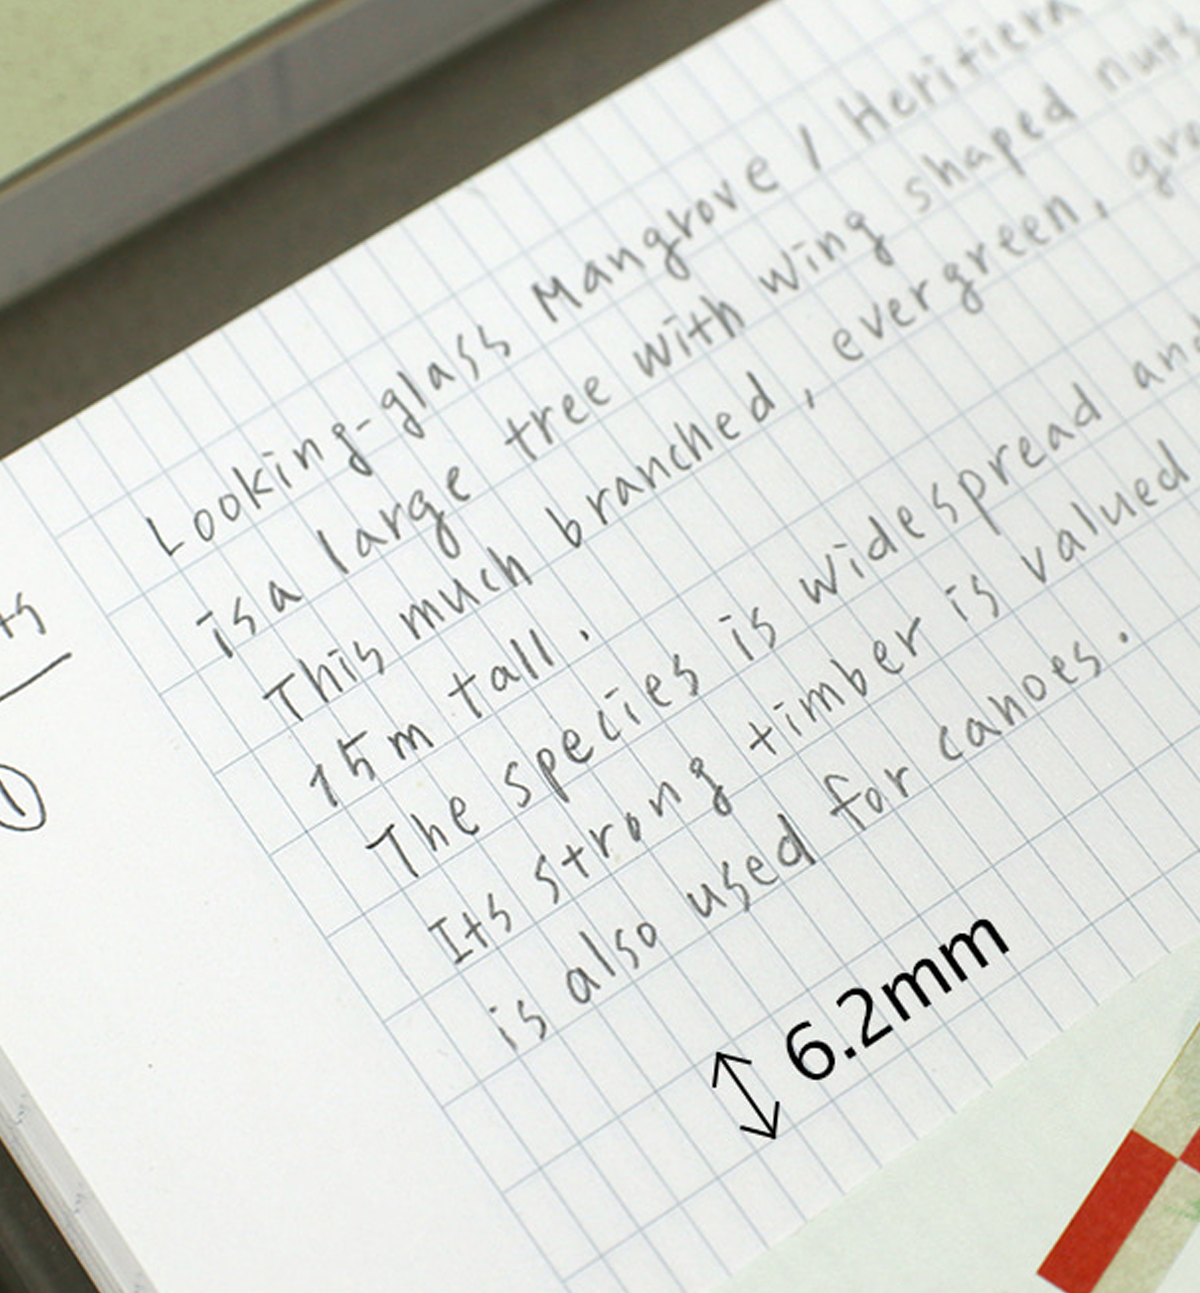 Looking-glass Mangrove / Heritiera
is a large tree with wing shaped nuts
This much branched, evergreen,
15m tall.
The species is widespread and
Its strong timber is valued
is also used for canoes.
1
6.2mm